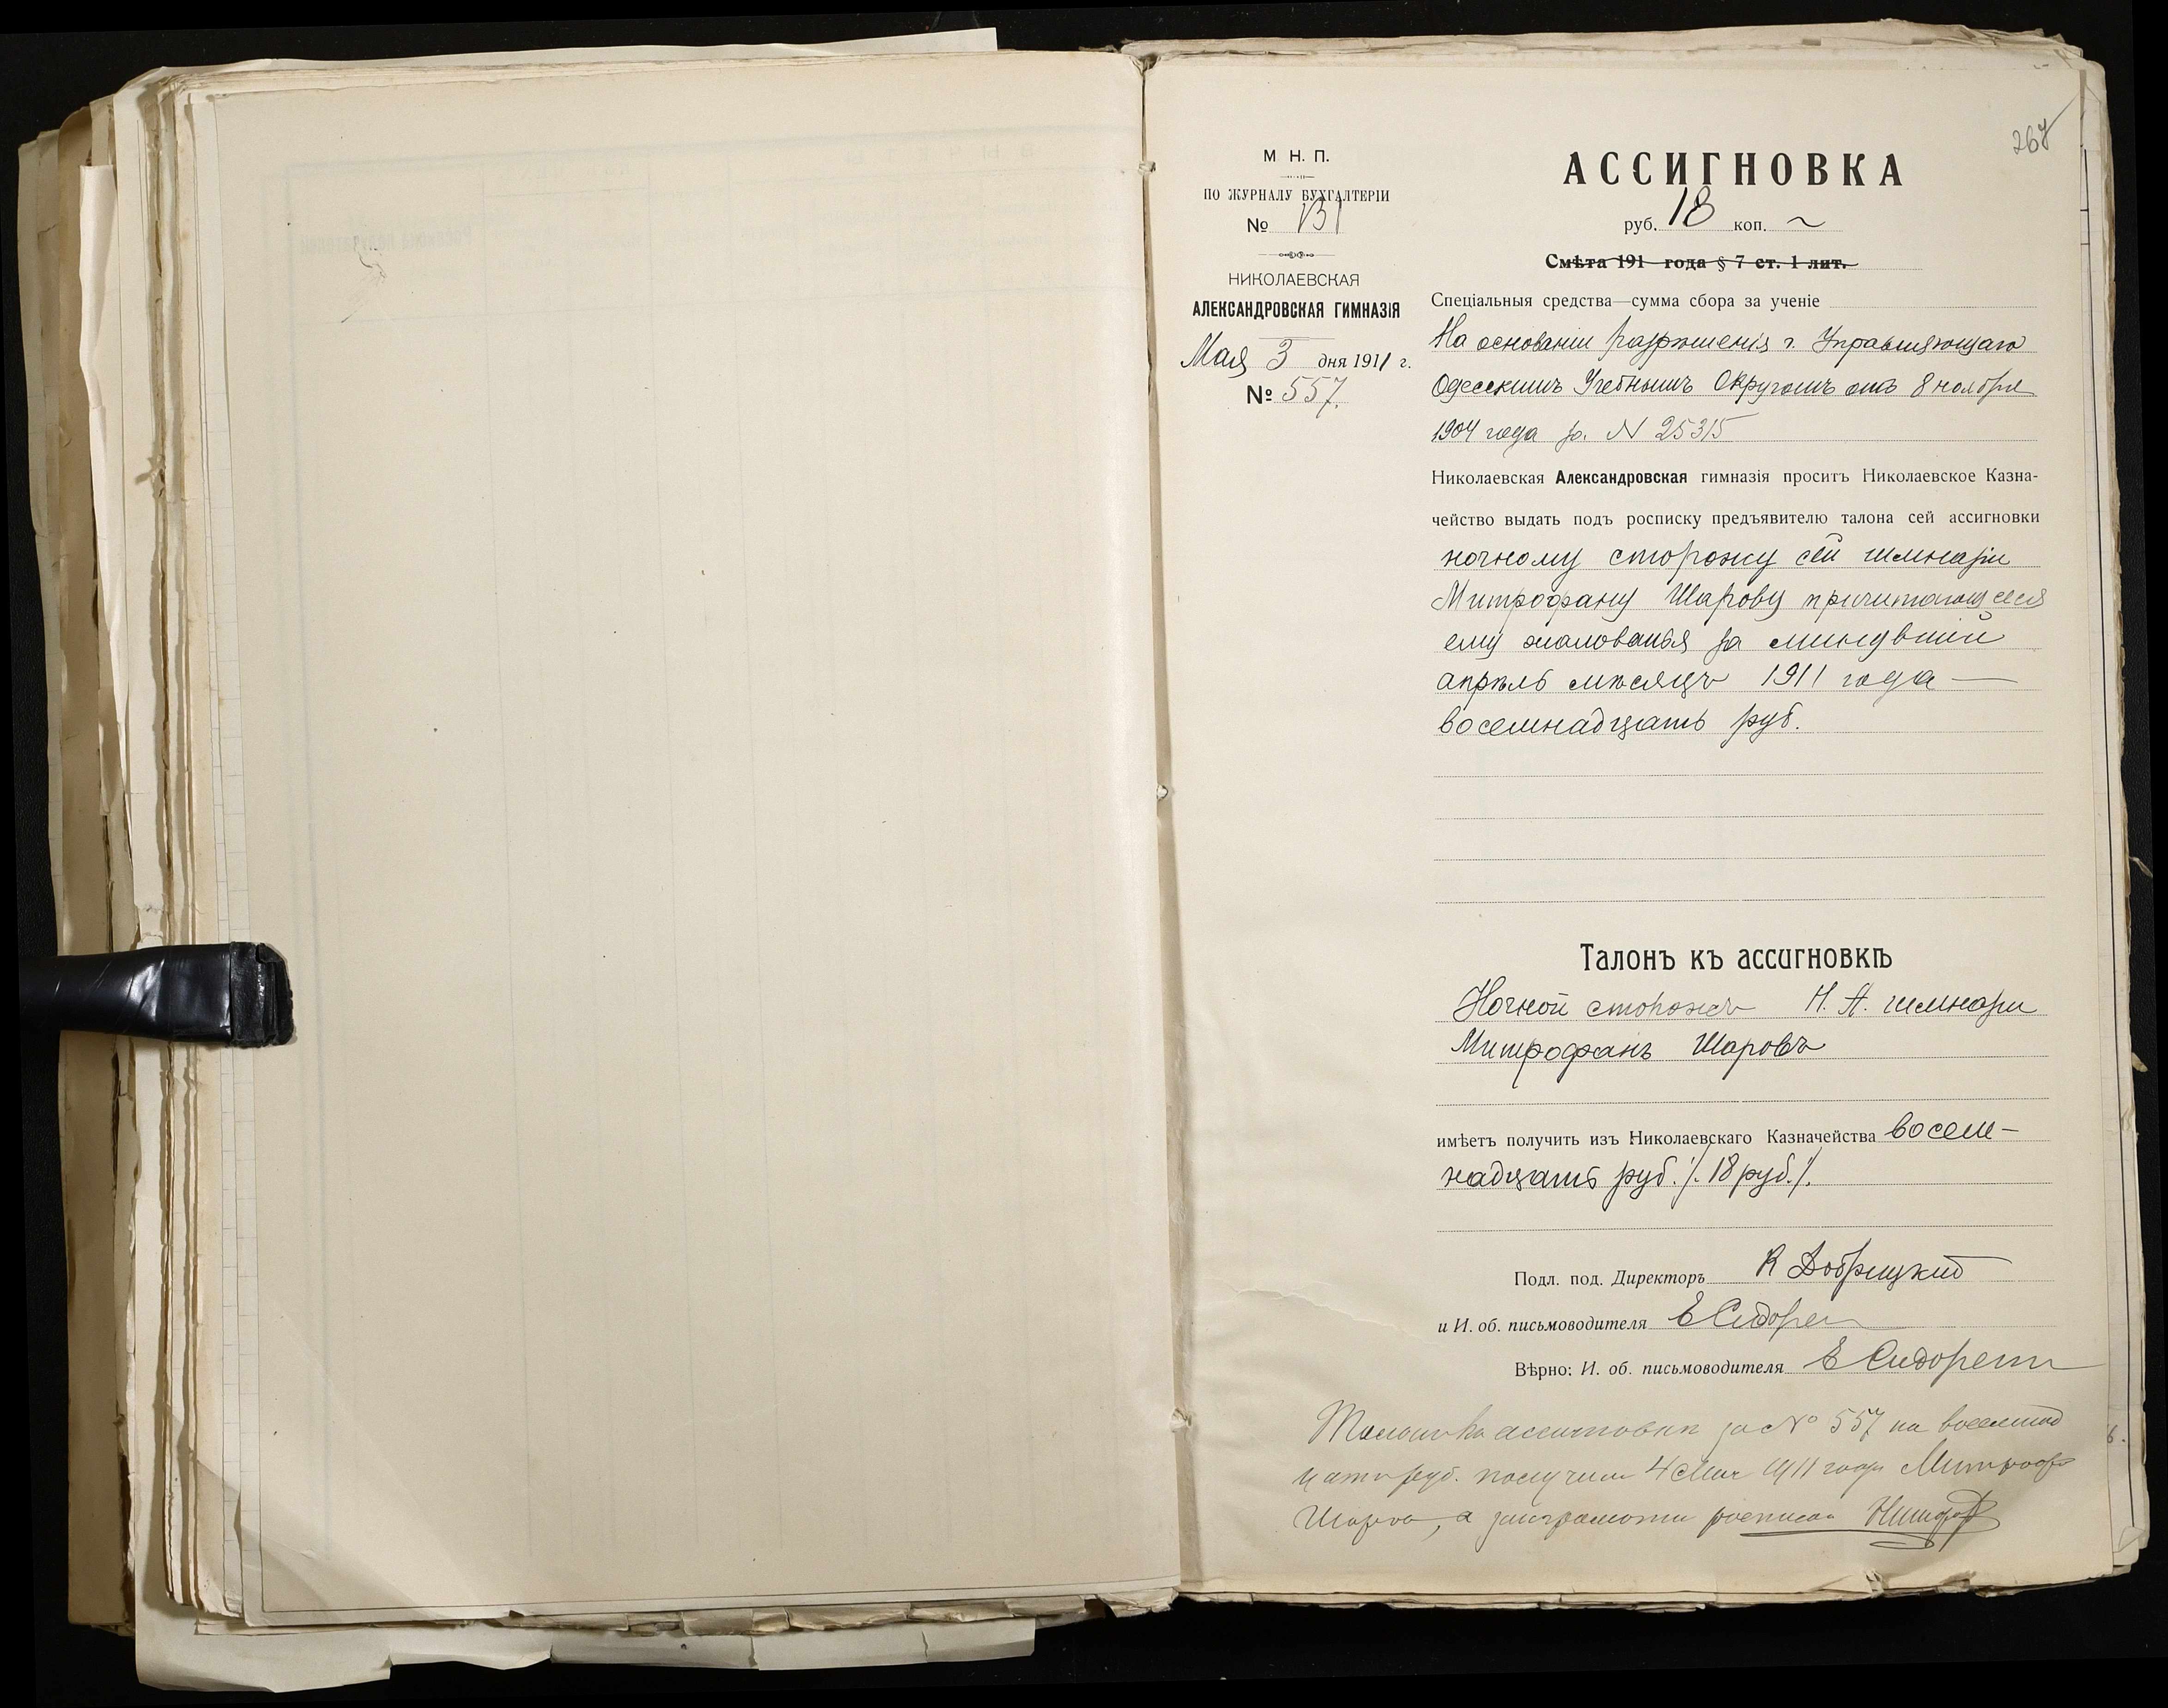 267
М. Н. П.
ПО ЖУРНАЛУ БУХГАЛТЕРІИ
№ 131
НИКОЛАЕВСКАЯ
АЛЕКСАНДРОВСКАЯ ГИМНАЗІЯ
Мая 3 дня 1911 г.
№ 557.
АССИГНОВКА
руб. 18 коп. ~
Смѣта 191 года § 7 ст. 1 лит.
Спеціальныя средства—сумма сбора за ученіе
На основаніи разрѣшенія г. Управляющаго
Одесскимъ Учебнымъ Округомъ отъ 8 ноября
1904 года за N 25315
Николаевская Александровская гимназія проситъ Николаевское Казна-
чейство выдать подъ росписку предъявителю талона сей ассигновки
ночному сторожу сей гимназіи
Митрофану Шарову причитающееся
ему жалованья за минувшій
апрѣль мѣсяцъ 1911 года —
восемнадцать руб.
Талонъ къ ассигновкѣ
Ночной сторожъ Н. А. гимназіи
Митрофанъ Шаровъ
имѣетъ получить изъ Николаевскаго Казначейства восем-
надцать руб. /. 18 руб. /.
Подл. под. Директоръ К Добрицкій
и И. об. письмоводителя Е Сидорен
Вѣрно: И. об. письмоводителя Е Сидорен
Талонъ къ ассигновкѣ за № 557 на восемнад
цать руб. получилъ 4 Мая 1911 года Митроф
Шаровъ, а неграмотн росписал